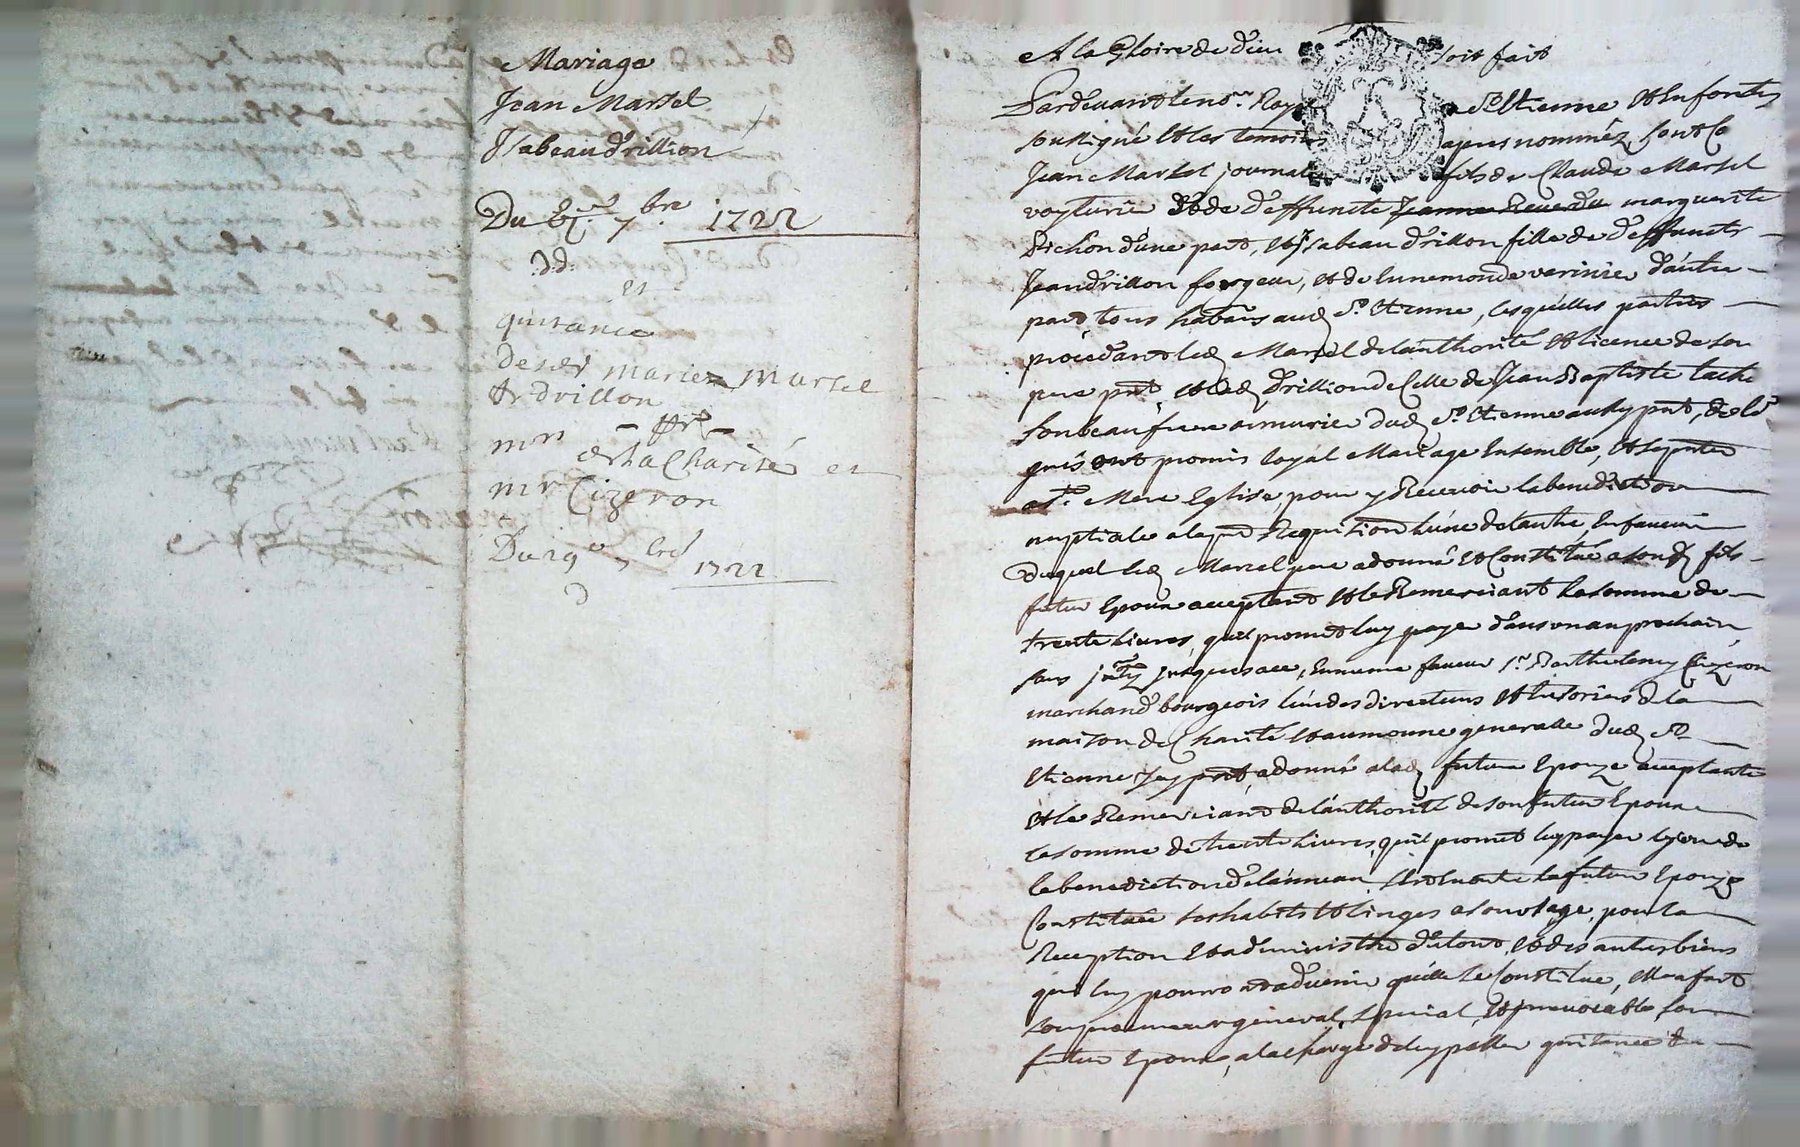 Mariage
Jean Marsel
Isabeau drillion
Du 7bre 1722
dd.
et
quitance
desd mariez Marsel
& drillon
mrs
de la Charité et
mr Cizeron
Du 29e 7bre
1722
A la Gloire de dieu soit fait
Pardevant le nore Royal a St Etienne & En forests
soussigné & les temoins apres nomméz, sont
Jean Marsel journal fils de Claude Marsel
voyturié & de deffuncte Jeanne Reverdu marguerite
Pichon d'une part, & ysabeau drillon fille de deffuncts
Jean drillon forgeur, & de lunemonde verinie d'autre
part, tous habans aud St Etienne, lesquelles parties
procedant led Marsel de l'authorité & licence de son
pere pnt, & lad drillion de Celle de Jean Baptiste tache
son beaufrere armurier dud St Etienne aussy pnt, de
gré ont promis loyal Mariage Ensemble, & se pnter
a Ste Mere Eglise, pour y Recevoir la benediction
nuptiale a la pre Requisition l'une de l'autre, En faveur
duquel led Marsel pere a donné & Constitué a sond fils
futur Epoux acceptant & le Remerciant la somme de
trente livres, quil promet luy payer d'aus on an prochain
sans jusques a ce, En meme faveur sr Barthelemy Cizeron
marchand bourgeois l'un des directeurs & tresoriers de la
maison de Charité & aumoune generalle dud St
Etienne Icy pnt, a donné a lad future Epouze acceptante
& le Remerciant de l'authorité de son futur Epoux
la somme de trente livres, quil promet luy payer le jour de
la benediction de l'anneau, la future Epouze
Constituée ses habits & linges a son usage, pour la
Reception & administrãon du tout, & des autres biens
qui luy pourront advenir quelle se Constitue, Elle a fait
son procureur general, special, & irrevocable, son
futur Epoux, a la charge de luy passer quitance